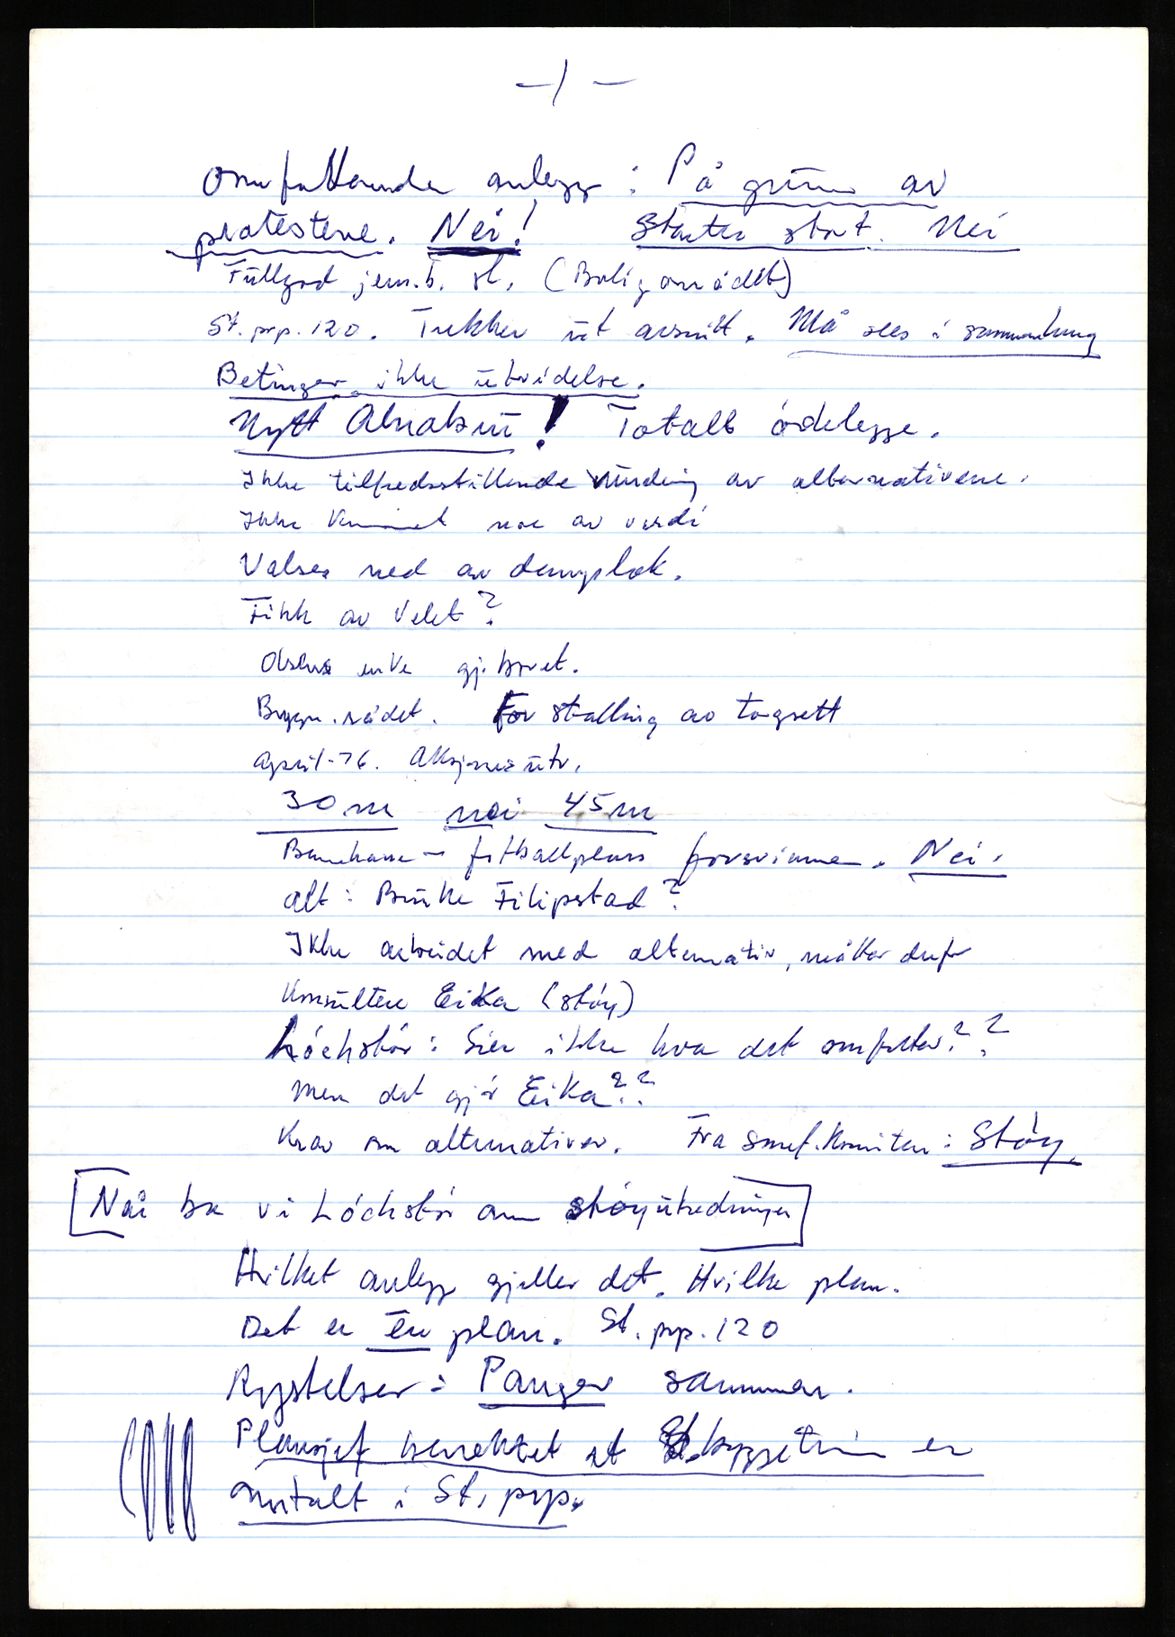 -1-
Omfattende anlegg : På grunn av
protestene. Nei! Starter stort. Nei
Fullgod jern.b. st. (Boligområdet)
St. prp. 120. Trekker ut avsnitt. Må sees i sammenheng
Betinger ikke utvidelse.
Nytt Alnabru! Totalt ödelegge.
Ikke tilfredsstillende vurdering av alternativene.
Ikke kommet noe av verdi
Valses ned av damplok.
Fikk av Velet?
enke gj. boret.
Bygn.rådet. For stalling av togsett
april-76. Aksjonsutv.
30 m nei 45 m
Barnehave - fotballplass forsvinner. Nei.
alt : Bruke Filipstad?
Ikke arbeidet med alternativ, måtte derfor
konsultere Eika (stöy)
Löchstör : Sier ikke hva det omfatter??
Men det gjör Eika??
Krav om alternativer. Fra samf.komiteen : Stöy.
Når ba vi Löchstör om stöyutredninger
Hvilket anlegg gjelder det. Hvilke plan.
Det er en plan. St. prp. 120
Rystelser : Penger sammen.
Plansjef benektet at byggetrinn er
omtalt i St. prp.